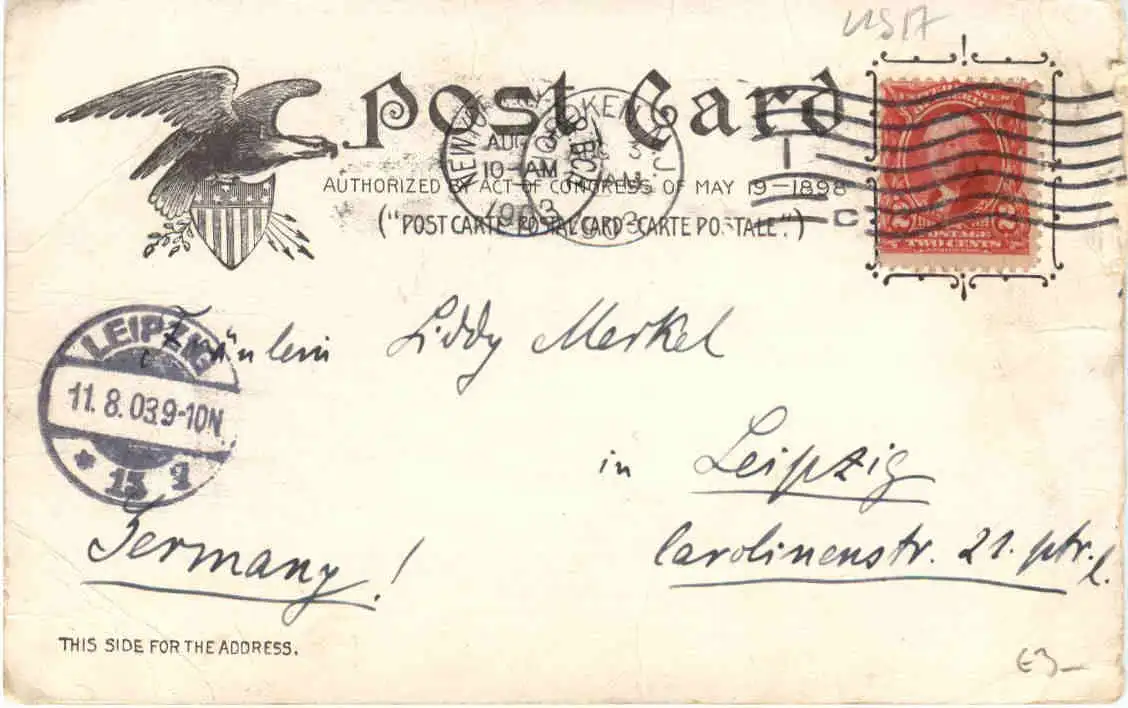 USA
Post Card
NEW YORK
AUG 3
10-AM
1903
HOBOKEN, N.J.
AUTHORIZED BY ACT OF CONGRESS, OF MAY 19-1898
("POST CARTE-POSTAL CARD-CARTE POSTALE".)
C
POSTAGE
2 2
TWO CENTS
Fräulein Liddy Merkel
LEIPZIG
11.8.03.9-10N
* 13
in Leipzig
Germany!
Carolinenstr. 21. ptr. l.
THIS SIDE FOR THE ADDRESS.
€3-